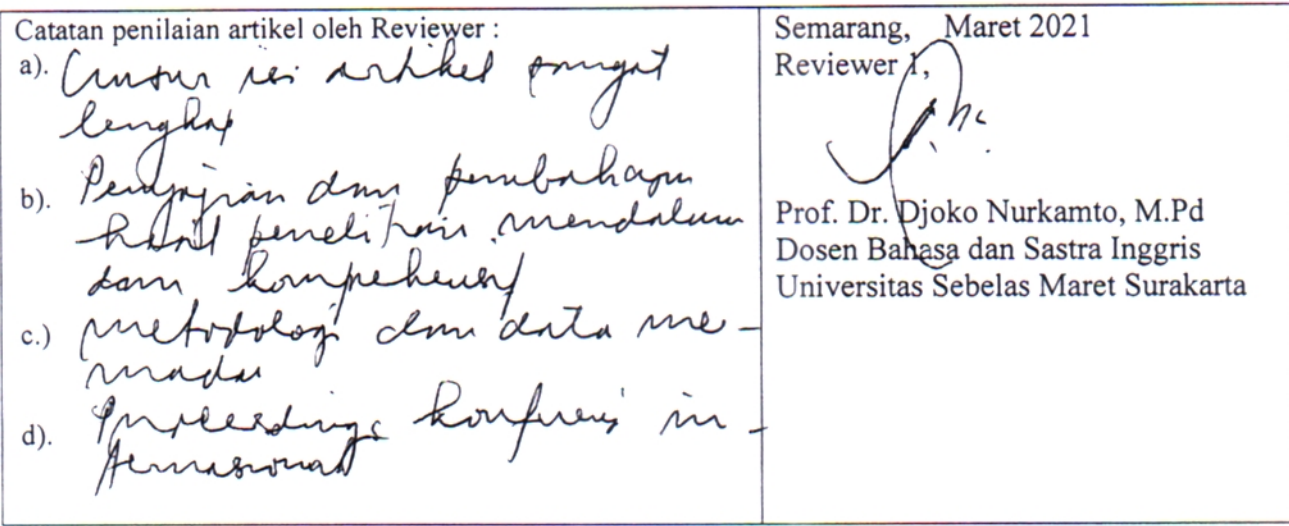 Catatan penilaian artikel oleh Reviewer :
a). Unsur isi artikel sangat
lengkap
b). Penyajian dan pembahasan
hasil penelitian mendalam
dan komprehensif
c.) metodologi dan data me-
madai
d). Proceedings konferensi in-
ternasional
Semarang, Maret 2021
Reviewer 1,
Prof. Dr. Djoko Nurkamto, M.Pd
Dosen Bahasa dan Sastra Inggris
Universitas Sebelas Maret Surakarta